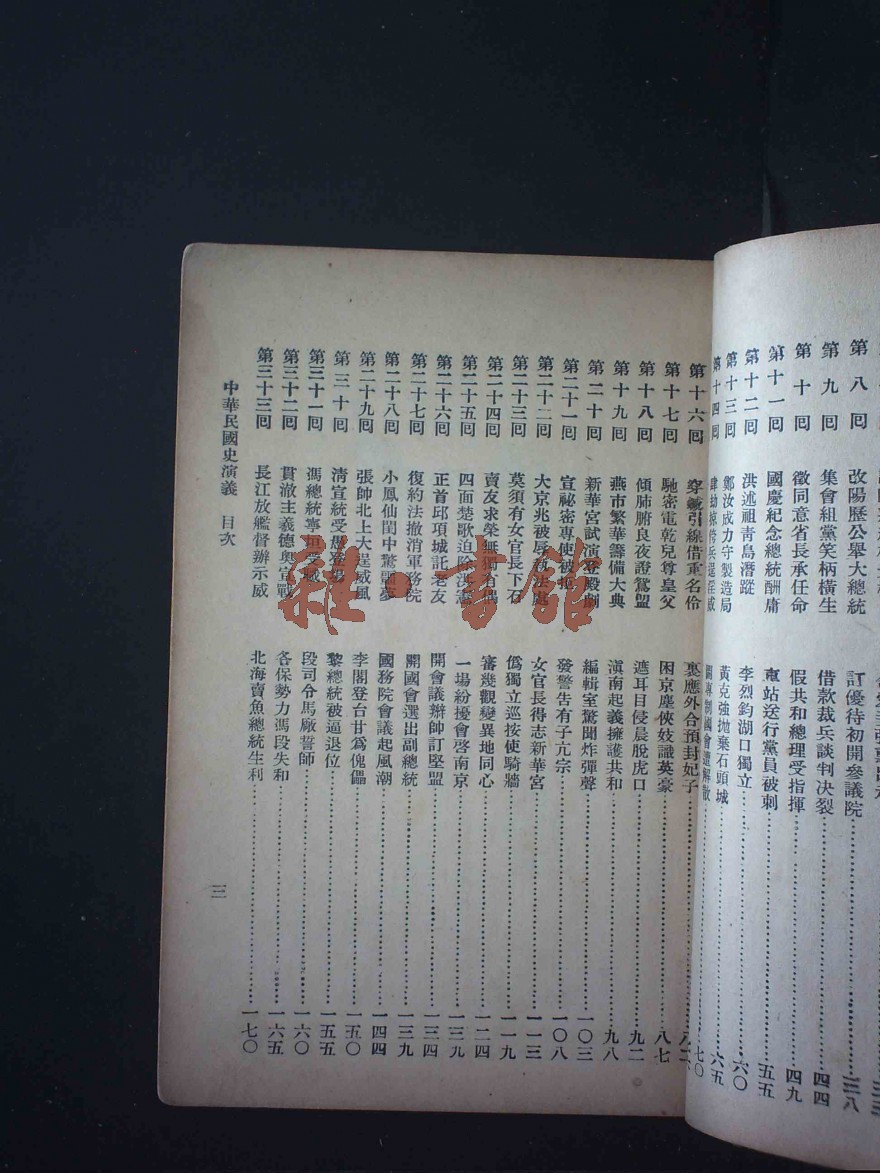 第八回 改陽歷公舉大總統 訂優待初開參議院 三八
第九回 集會組黨笑柄橫生 借款裁兵談判決裂 四四
第十回 徵同意省長承任命 假共和總理受指揮 四九
第十一回 國慶紀念總統酬庸 車站送行黨員被刺 五五
第十二回 洪述祖青島潛蹤 李烈鈞湖口獨立 六〇
第十三回 鄭汝成力守製造局 黃克強拋棄石頭城 六五
第十四回 肆劫掠 兵逞淫威 專制國會遭解散 七〇
第十六回 穿針引線借重名伶 裏應外合預封妃子 八二
第十七回 馳密電乾兒尊皇父 困京塵俠妓識英豪 八七
第十八回 傾肺腑良夜證鴛盟 遮耳目侵晨脫虎口 九二
第十九回 燕市繁華籌備大典 滇南起義擁護共和 九八
第二十回 新華宮試演登殿劇 編輯室驚聞炸彈聲 一〇三
第二十一回 宣祕密專使被拒 發警告有子亢宗 一〇八
第二十二回 大京兆被辱執法處 女官長得志新華宮 一一三
第二十三回 莫須有女官長下石 僞獨立巡按使騎牆 一一九
第二十四回 賣友求榮無獨有偶 審幾觀變異地同心 一二四
第二十五回 四面楚歌迫除洪憲 一場紛擾會啓南京 一三九
第二十六回 正首邱項城託老友 開會議辮帥訂堅盟 一三四
第二十七回 復約法撤消軍務院 開國會選出副總統 一三九
第二十八回 小鳳仙閨中驚噩夢 國務院會議起風潮 一四四
第二十九回 張帥北上大逞威風 李閣登台甘爲傀儡 一五〇
第三十回 清宣統受愚登場 黎總統被逼退位 一五五
第三十一回 馮總統寧垣受職 段司令馬廠誓師 一六〇
第三十二回 貫澈主義德奧宣戰 各保勢力馮段失和 一六五
第三十三回 長江放艦督辦示威 北海賣魚總統生利 一七〇
中華民國史演義 目次
三
雜·書館